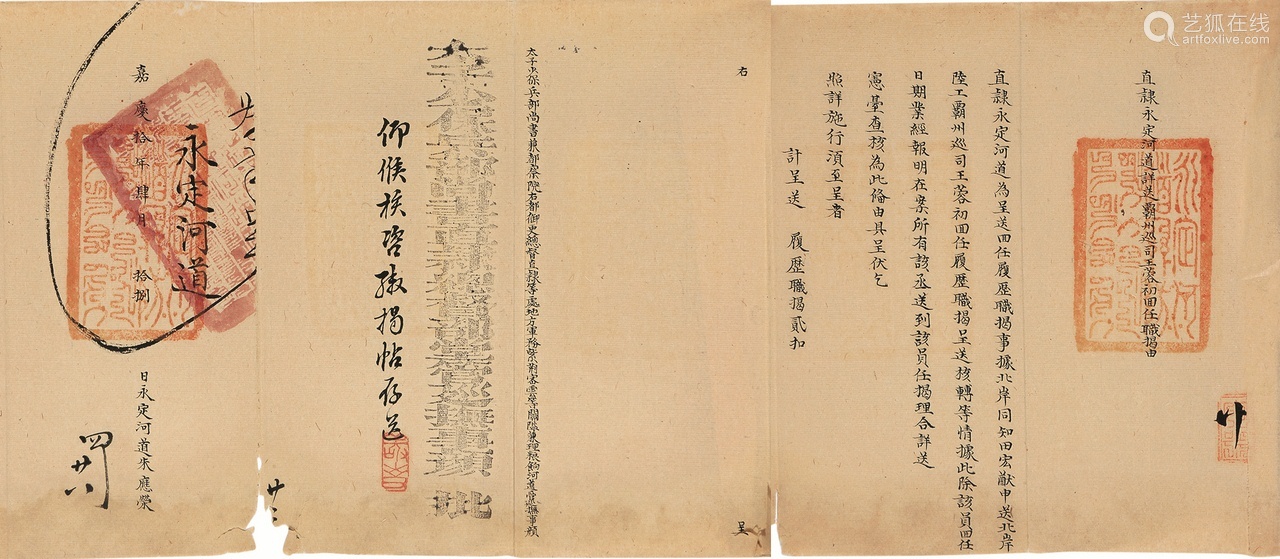 直隸永定河道詳送霸州巡司王蓉初回任職揭由
廿
直隸永定河道為呈送回任履歷職揭事據北岸同知田宏猷申送北岸
陸工霸州巡司王蓉初回任履歷職揭呈送核轉等情據此除該員回任
日期業經報明在案所有該丞送到該員任揭理合詳送
憲臺查核為此備由具呈伏乞
照詳施行須至呈者
計呈送 履歷職揭貳扣
右 呈
太子少保兵部尚書兼都察院右都御史總督直隸等處地方軍務紫荊密雲等關隘兼理糧餉河道兼巡撫事顏
太子少保兵部尚書直隸總督部堂兼巡撫事顏 批
仰候核咨繳揭帖存送
嘉慶拾年肆月 拾捌 日永定河道朱應榮
永定河道
四廿八
艺狐在线
artfoxlive.com